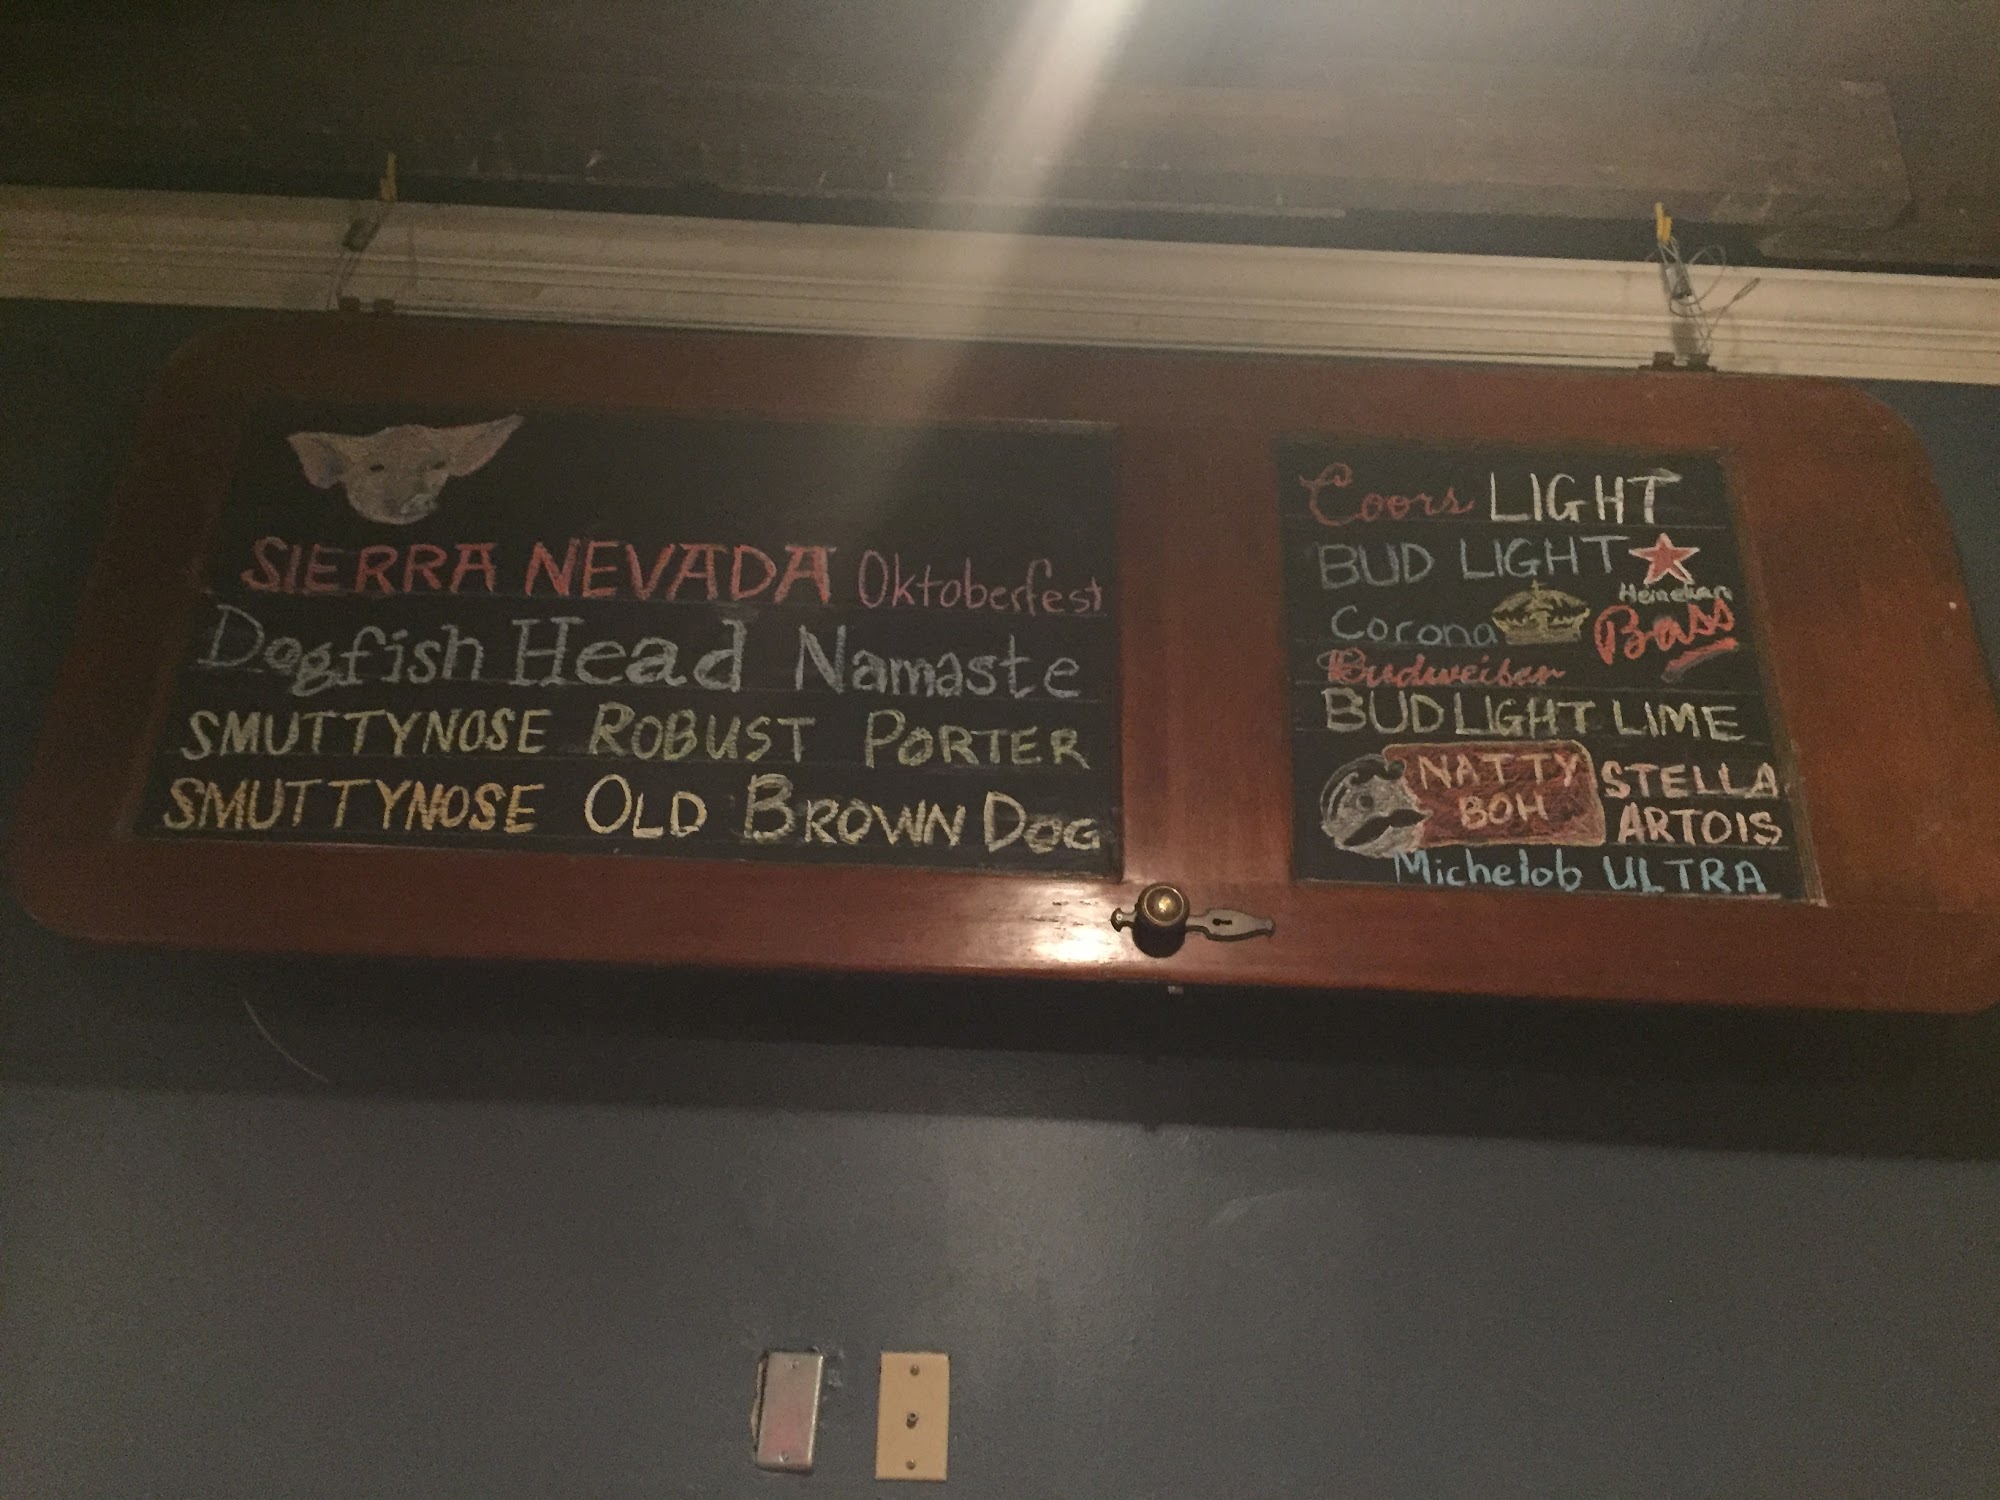 SIERRA NEVADA Oktoberfest
Dogfish Head Namaste
SMUTTYNOSE ROBUST PORTER
SMUTTYNOSE OLD BROWN DOG
Coors LIGHT
BUD LIGHT
Heineken
Corona
Bass
Budweiser
BUD LIGHT LIME
NATTY
BOH
STELLA
ARTOIS
Michelob ULTRA